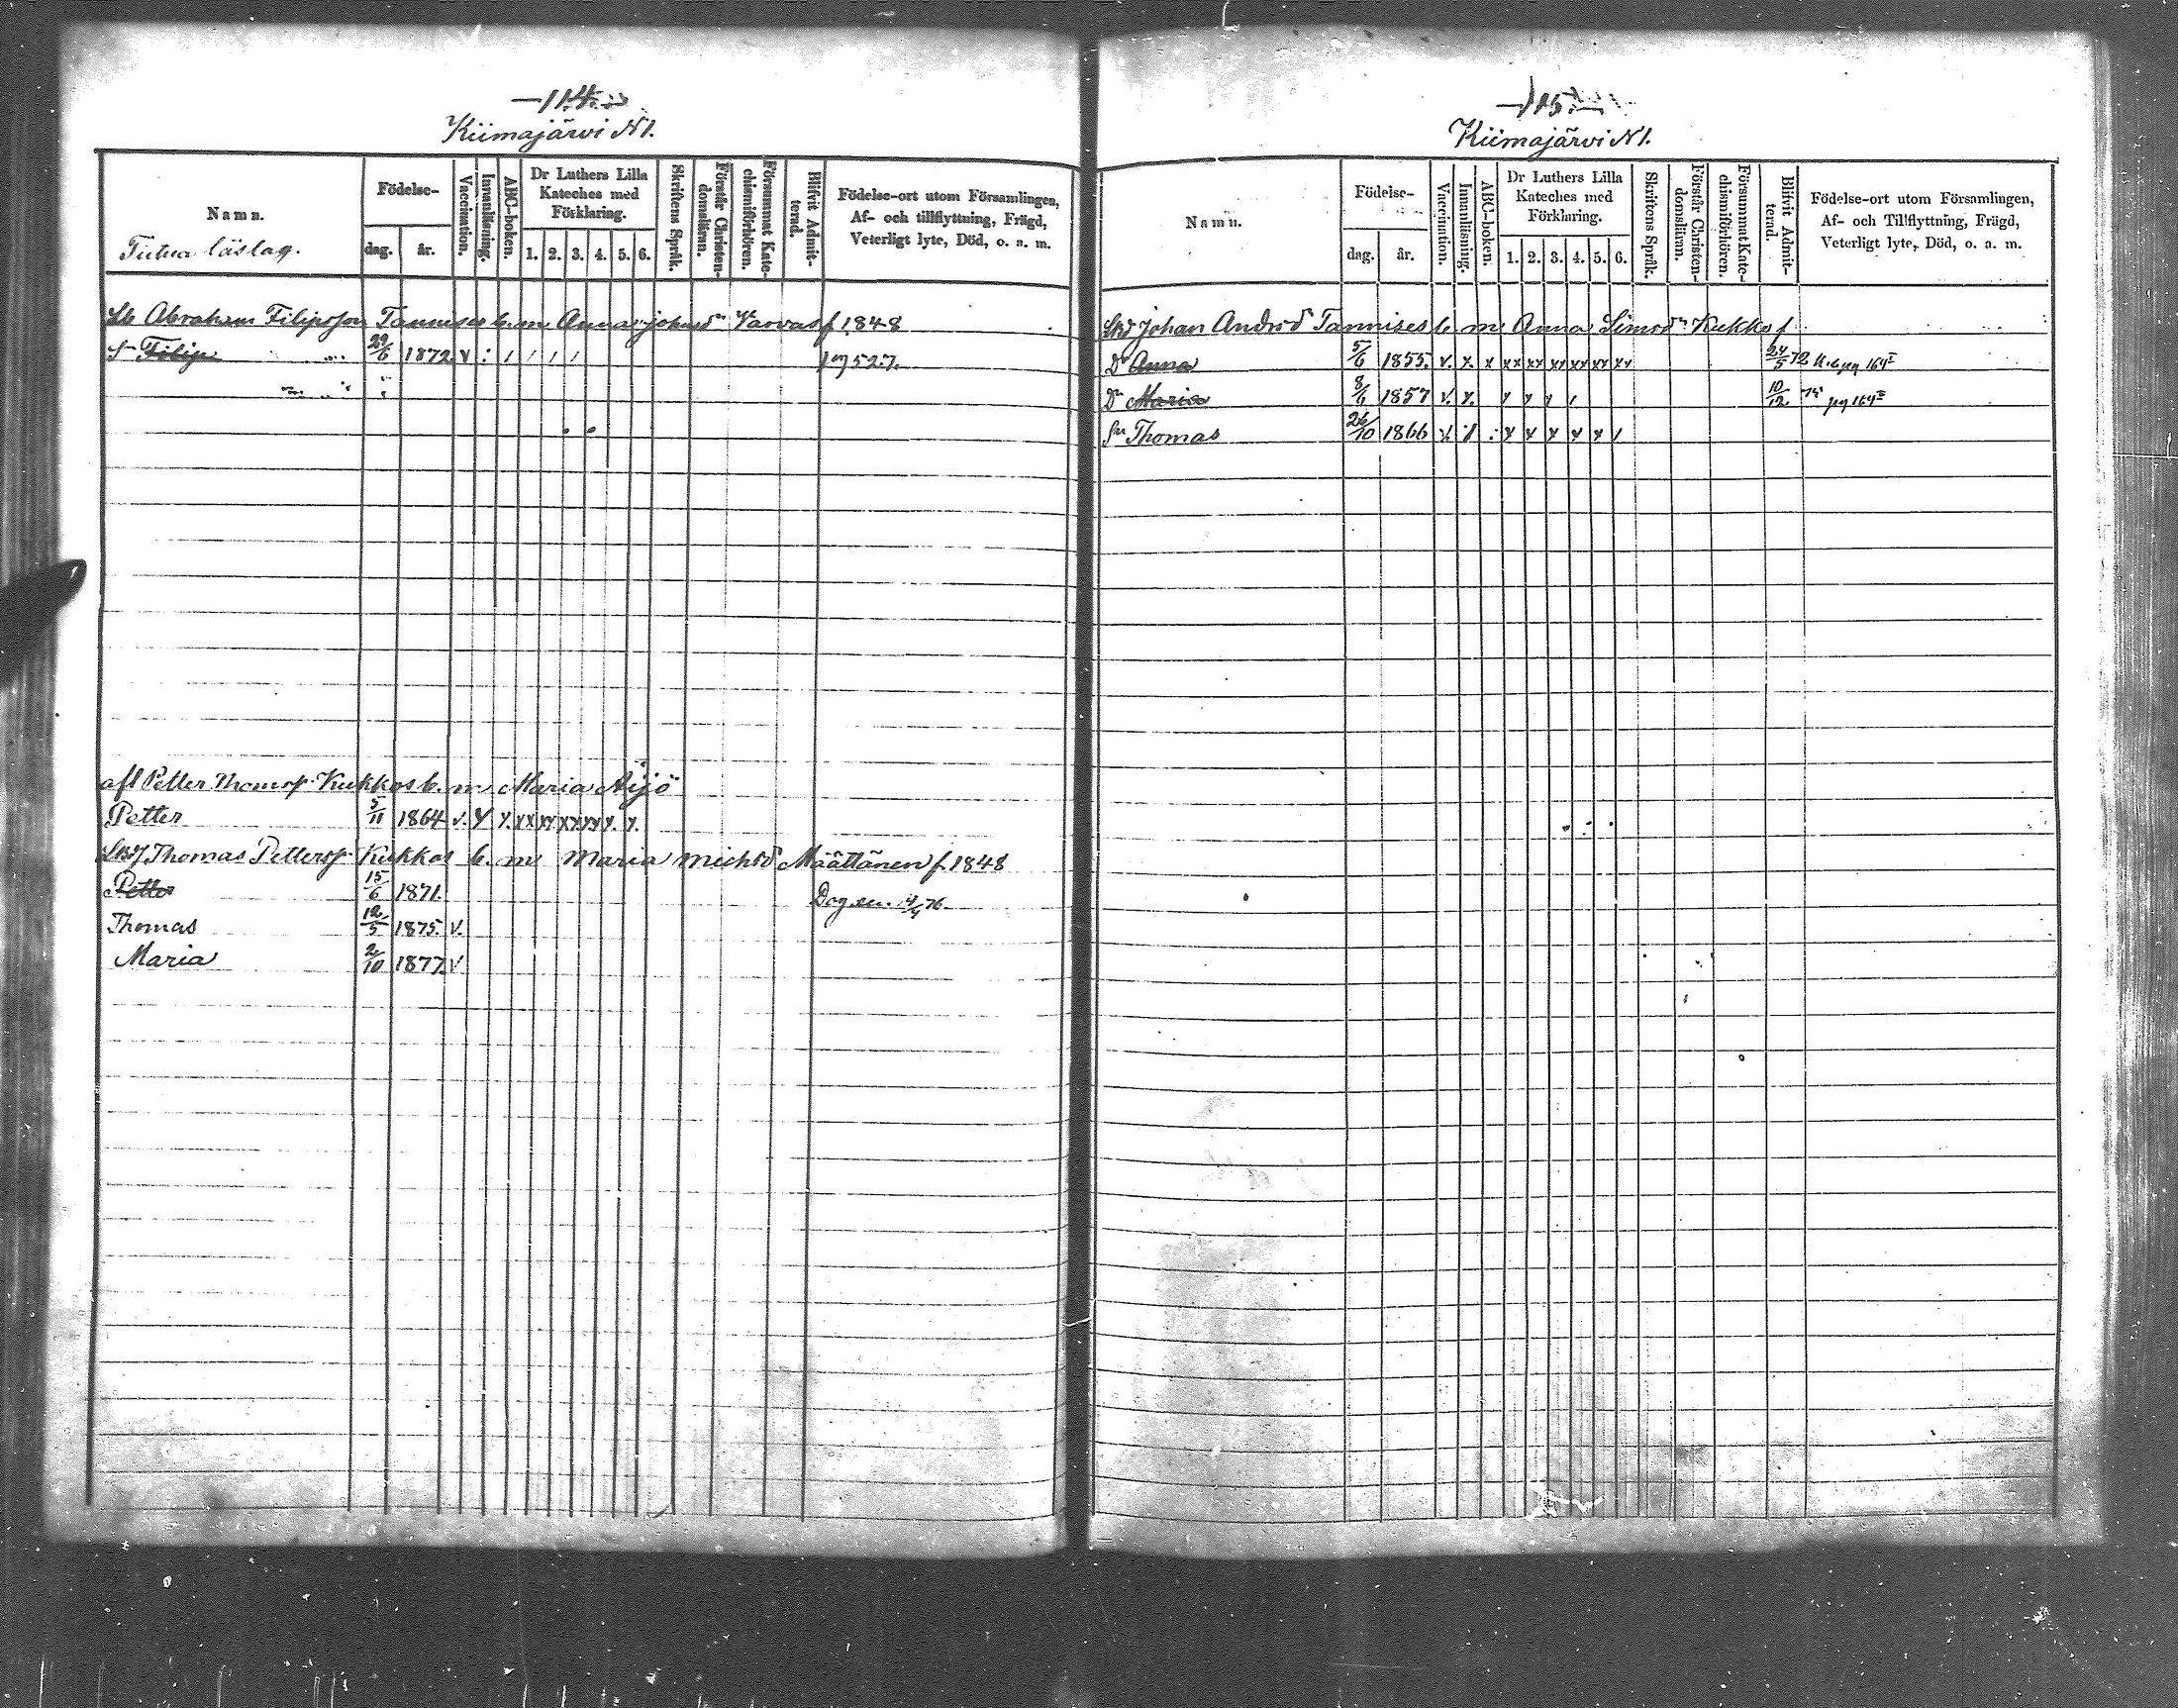 —114.—
Kiimajärvi N1.
Namn.
Födelse-
dag. år.
Vaccination.
Innanläsning.
ABC-boken.
Dr Luthers Lilla Kateches med Förklaring.
1. 2. 3. 4. 5. 6.
Skriftens Språk.
Förstår Christendomsläran.
Försummat Katechismiförhören.
Blifvit Admitterad.
Födelse-ort utom Församlingen,
Af- och tillflyttning, Frägd,
Veterligt lyte, Död, o. a. m.
läslag.
Abraham Filipsson Tannises b. m Anna Johansdr Varvas f. 1848
Sn Filip 29/6 1872. v : / / / / / pag 527.
afl Petter Thomsp. Kukkos b. m. Maria Äijö
Petter 5/11 1864 v. Y x. xx xx xx xx x. x.
Thomas Pettersp Kukkos b. m Maria Michsdr Määttänen f. 1848
Petter 15/6 1871. Dog 76.
Thomas 12/5 1875. v.
Maria 2/10 1877. v
—115.—
Kiimajärvi N1.
Namn.
Födelse-
dag. år.
Vaccination.
Innanläsning.
ABC-boken.
Dr Luthers Lilla Kateches med Förklaring.
1. 2. 3. 4. 5. 6.
Skriftens Språk.
Förstår Christendomsläran.
Försummat Katechismiförhören.
Blifvit Admitterad.
Födelse-ort utom Församlingen,
Af- och Tillflyttning, Frägd,
Veterligt lyte, Död, o. a. m.
Johan Andrsd Tannises b. m Anna Simsdr Kukko f.
Dr Anna 5/6 1855. v. x. x xx xx xx xx xx xx 24/5 72 pag 164 I
Dr Maria 8/6 1857 v. x. x x x / 10/12 75 pag 164 II
Sn Thomas 26/10 1866 v x x x x x /